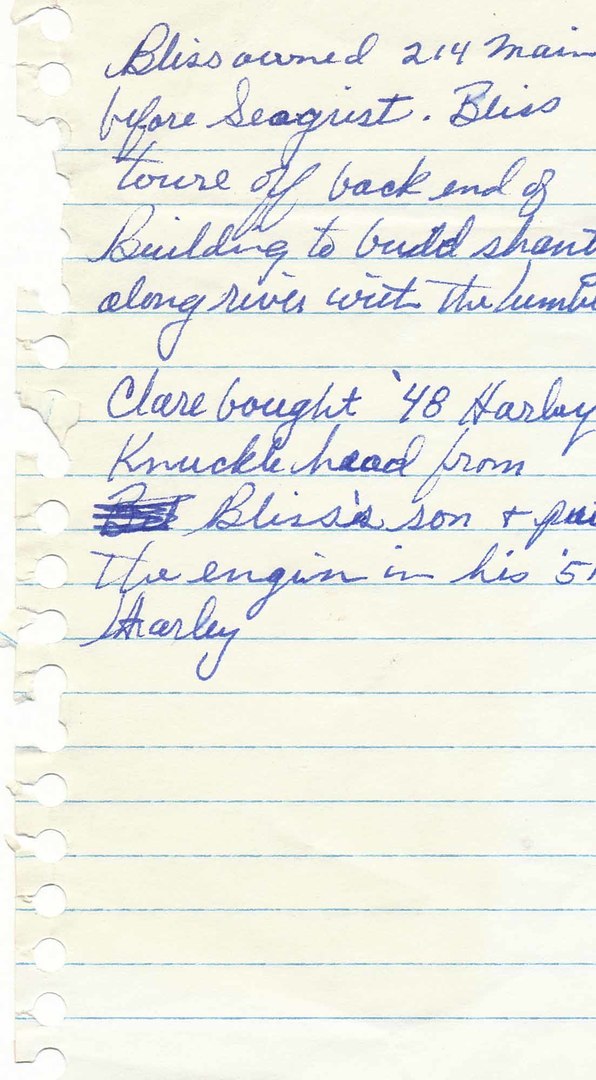 Bliss owned 214 Main
before Seagrist. Bliss
toure off back end of
Building to build shant
along river with the lumbe
Clare bought '48 Harley
Knuckle head from
Bliss's son + put
the engin in his '5
Harley